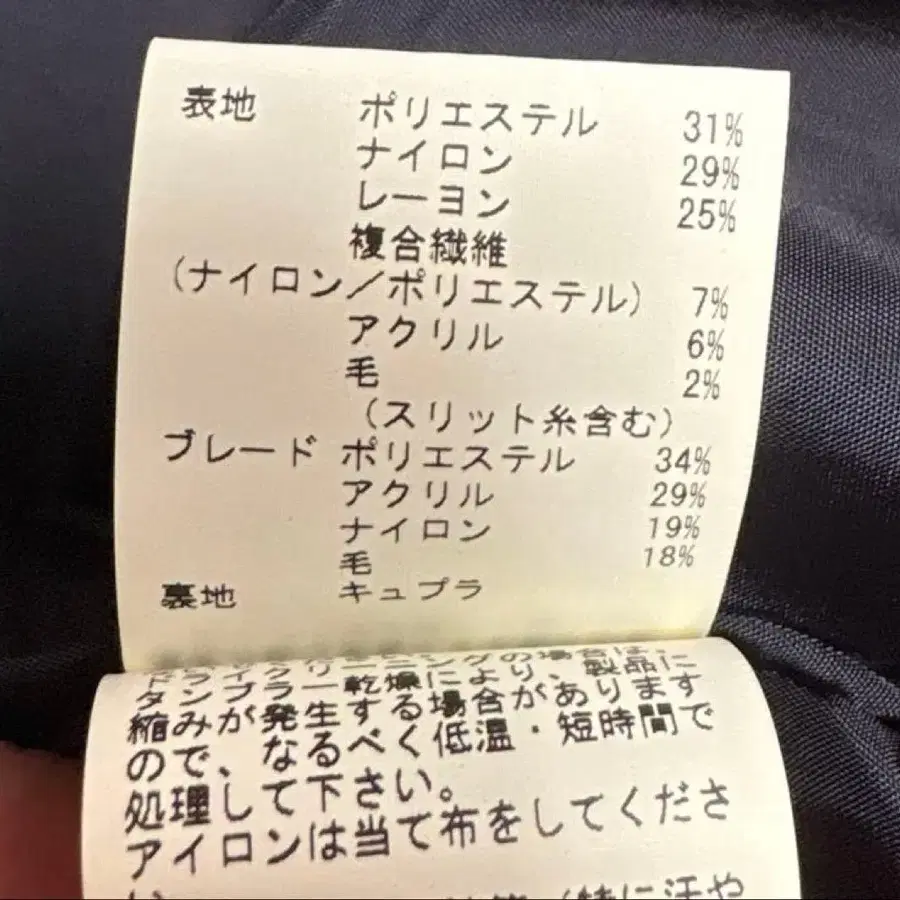 表地 ポリエステル 31%
ナイロン 29%
レーヨン 25%
複合繊維
(ナイロン/ポリエステル) 7%
アクリル 6%
毛 2%
(スリット糸含む)
ブレード ポリエステル 34%
アクリル 29%
ナイロン 19%
毛 18%
裏地 キュプラ
タンブラー乾燥により、製品に
縮みが発生する場合があります
ので、なるべく低温・短時間で
処理して下さい。
アイロンは当て布をしてくださ
い